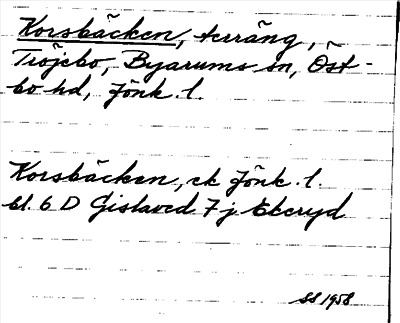 Korsbäcken, terräng,
Tröjebo, Byarums sn, Öst-
bo hd, Jönk. l.
Korsbäcken, ek Jönk. l.
bl. 6 D Gislaved 7 j Ekeryd
SS 1958